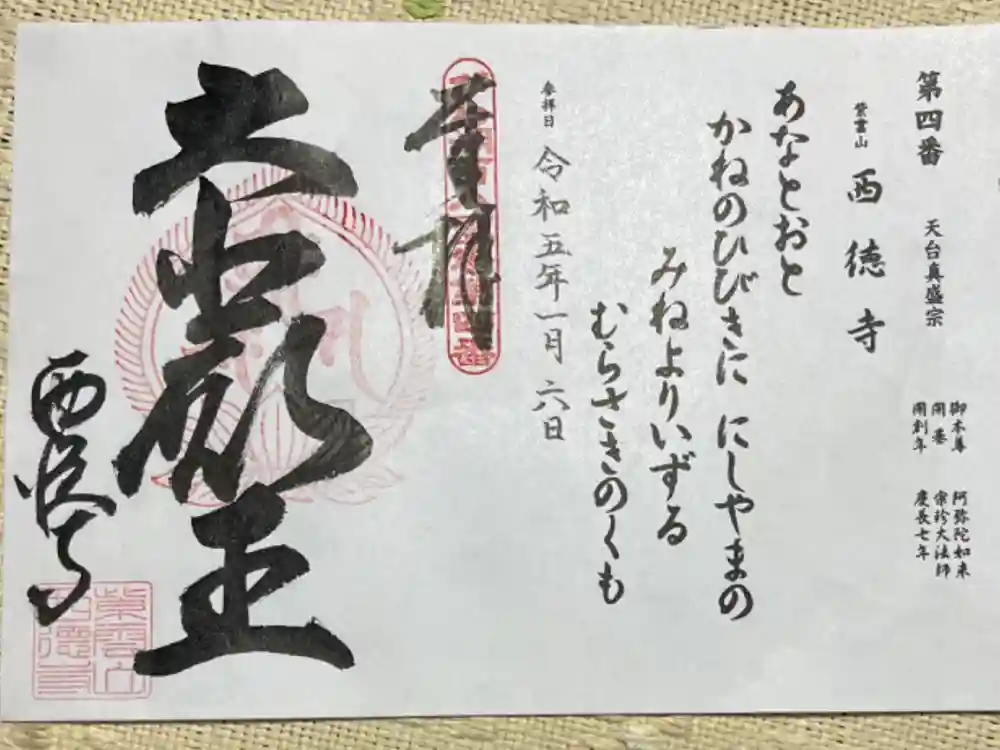 第四番 天台真盛宗
御本尊 阿弥陀如来
開基 宗珍大法師
開創年 慶長七年
紫雲山 西徳寺
あなとおと
かねのひびきに にしやまの
みねよりいずる
むらさきのくも
参拝日 令和五年一月六日
奉拝
大願王
西徳寺
紫雲山
西徳寺